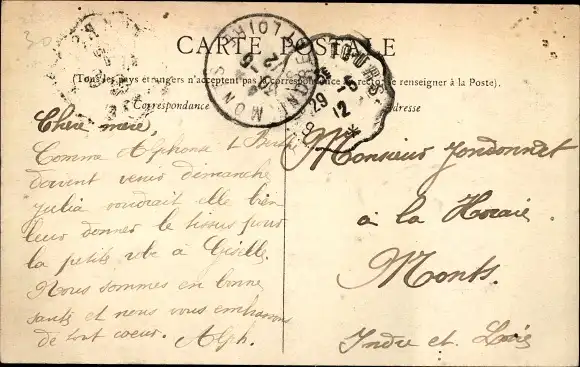 CARTE POSTALE
(Tous les pays étrangers n'acceptent pas la correspondance au recto, se renseigner à la Poste).
Correspondance
Adresse
Chère mère,
Comme Alphonse & Berthe
doivent venir dimanche
Julia voudrait elle bien
leur donner le tissus pour
la petite robe à Giselle.
Nous sommes en bonne
santé et nous vous embrassons
de tout coeur. Alph.
MONTS
INDRE ET LOIRE
12
TOURS
29
-5
12
Monsieur Jondonnet
à la Horaie
Monts.
Indre et Loire